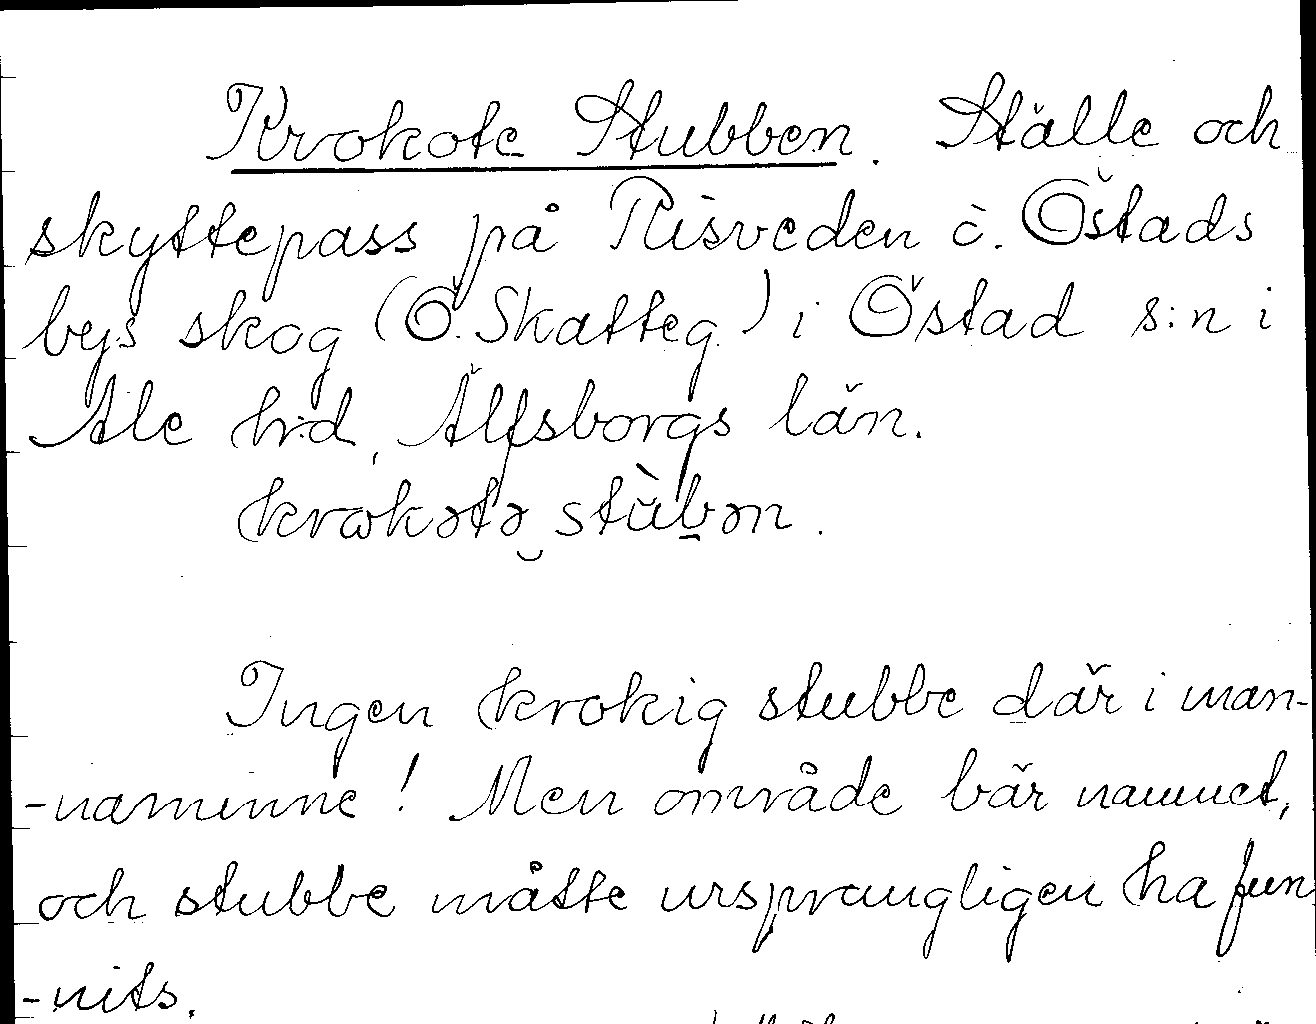 Krokote Stubben. Ställe och
skyttepass på Risveden i. Östads
bys skog (Ö. Skatteg.) i Östad s:n i
Ale h:d, Älfsborgs län.
krokətə stùbən.
Ingen krokig stubbe där i man-
-naminne! Men område bär namnet,
och stubbe måtte ursprungligen ha fun
-nits.